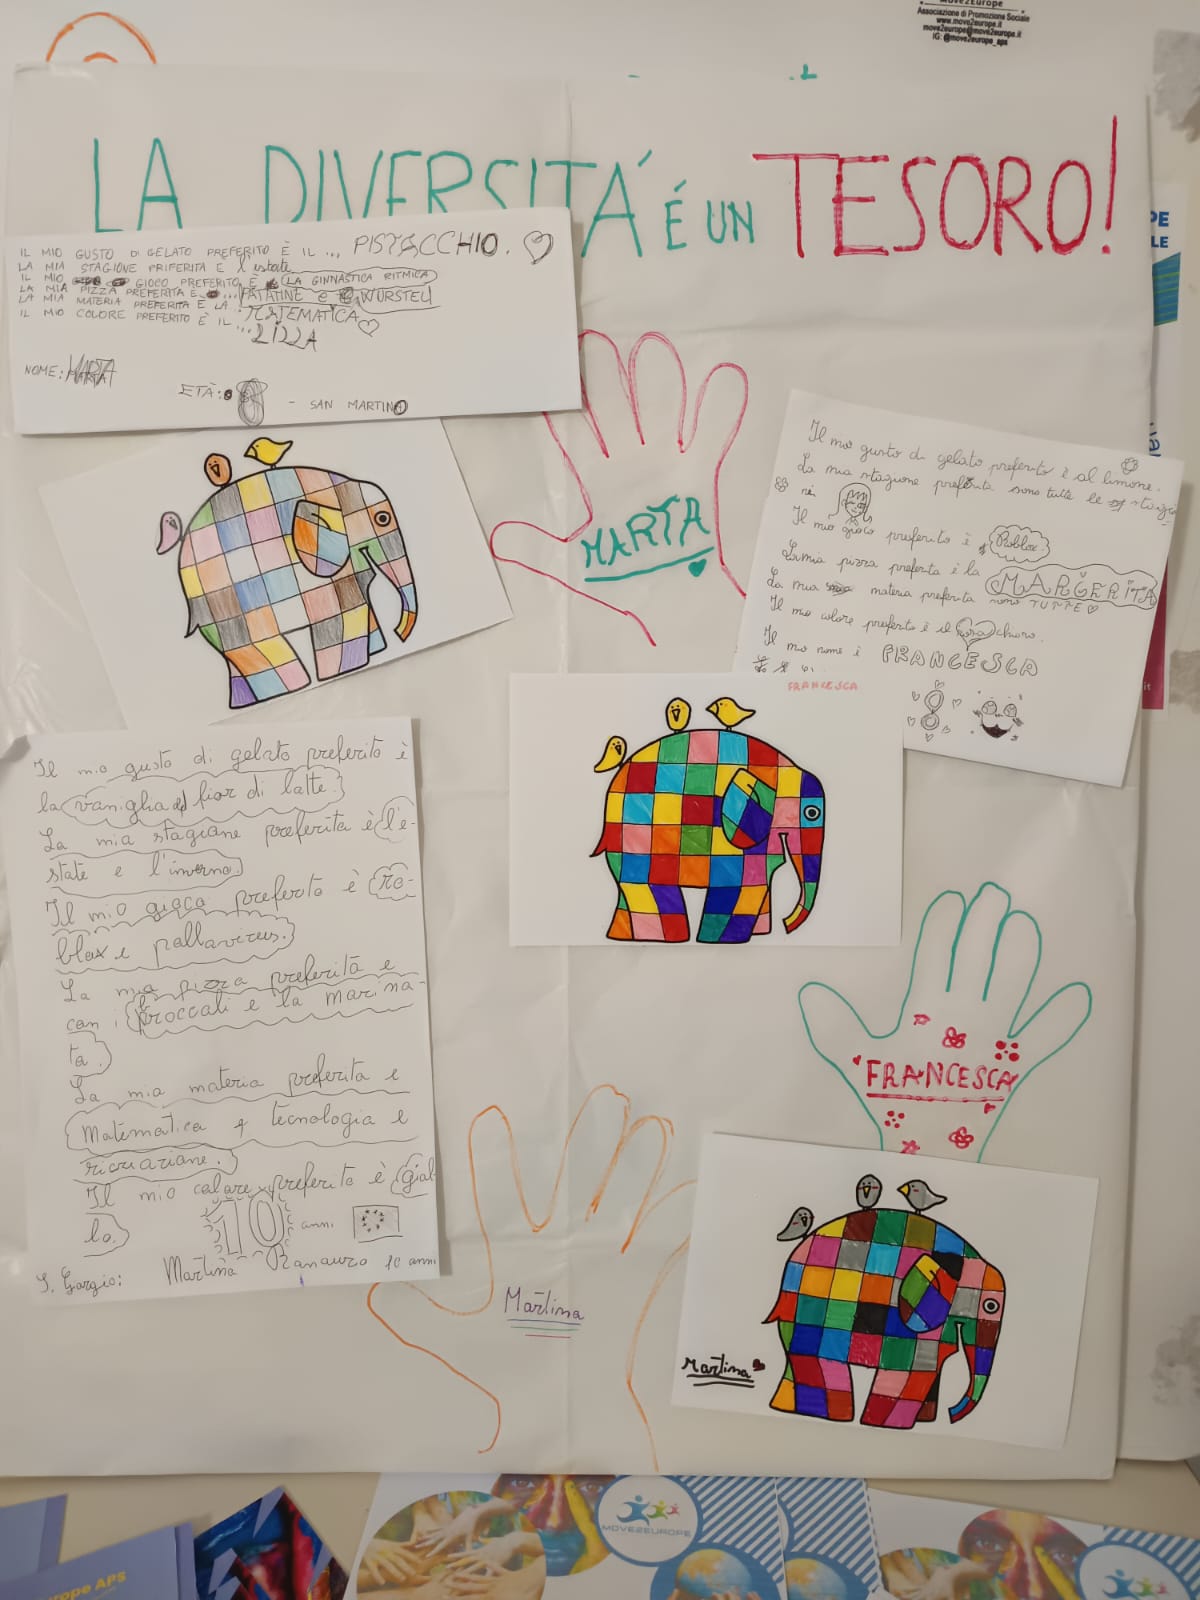 Move2Europe
Associazione di Promozione Sociale
www.move2europe.it
move2europe@move2europe.it
IG: @move2europe_aps
LA DIVERSITÁ É UN TESORO!
IL MIO GUSTO DI GELATO PREFERITO È IL ... PISTACCHIO.
LA MIA STAGIONE PRIFERITA È l'estate
IL MIO GIOCO PREFERITO È LA GINNASTICA RITMICA
LA MIA PIZZA PREFERITA È ... PATATINE e WURSTEL
LA MIA MATERIA PREFERITA È LA MATEMATICA
IL MIO COLORE PREFERITO È IL ... LILLA
NOME: MARTA
ETÀ: 8 - SAN MARTINO
MARTA
Il mio gusto di gelato preferito è al limone.
La mia stagione preferita sono tutte le stagio
ni
Il mio gioco preferito è Roblox.
La mia pizza preferita è la MARGERITA
La mia materia preferita sono TUTTE
Il mio colore preferito è il rosa chiaro.
Il mio nome è FRANCESCA
8
FRANCESCA
Il mio gusto di gelato preferito è
la vaniglia ed fior di latte.
La mia stagione preferita è l'e-
state e l'inverno.
Il mio gioco preferito è Ro-
blox e pallavirus.
La mia pizza preferita e
con i broccali e la marina-
ta.
La mia materia preferita e
Matematica tecnologia e
ricreazione.
Il mio colore preferito è gial-
lo.
10 anni
S. Giorgio: Martina Ranauro 10 anni
FRANCESCA
Martina
Martina
MOVE2EUROPE
urope APS